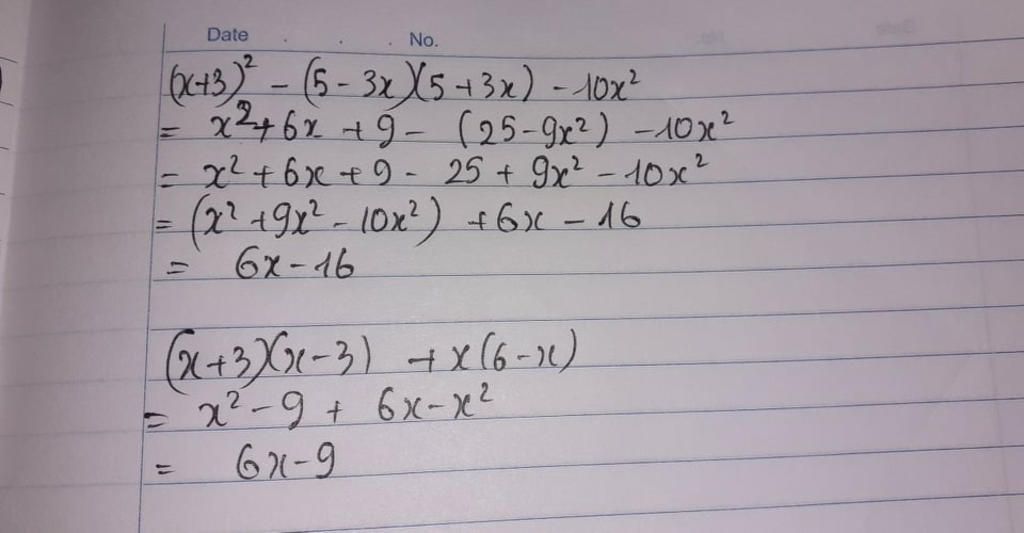 Date . . . No.
(x+3)² - (5 - 3x)(5 + 3x) - 10x²
= x² + 6x + 9 - (25 - 9x²) - 10x²
= x² + 6x + 9 - 25 + 9x² - 10x²
= (x² + 9x² - 10x²) + 6x - 16
= 6x - 16
(x+3)(x-3) + x(6-x)
= x² - 9 + 6x - x²
= 6x - 9